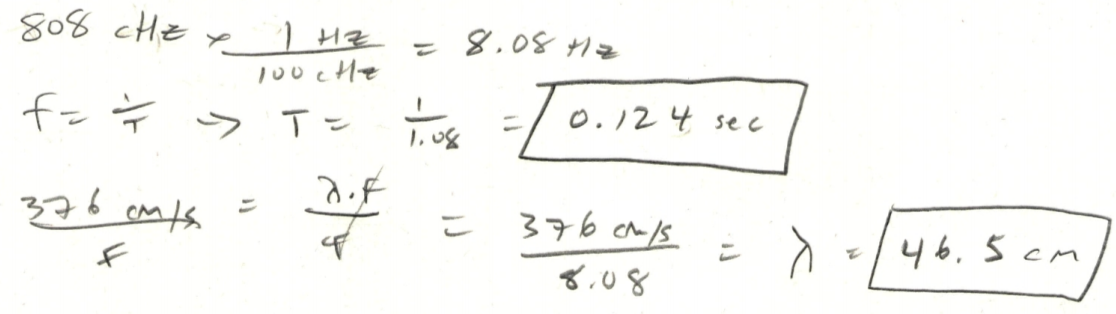 808 cHz × 1 Hz / 100 cHz = 8.08 Hz
f = 1/T → T = 1/1.08 = 0.124 sec
376 cm/s / f = λ·f / f = 376 cm/s / 8.08 = λ = 46.5 cm